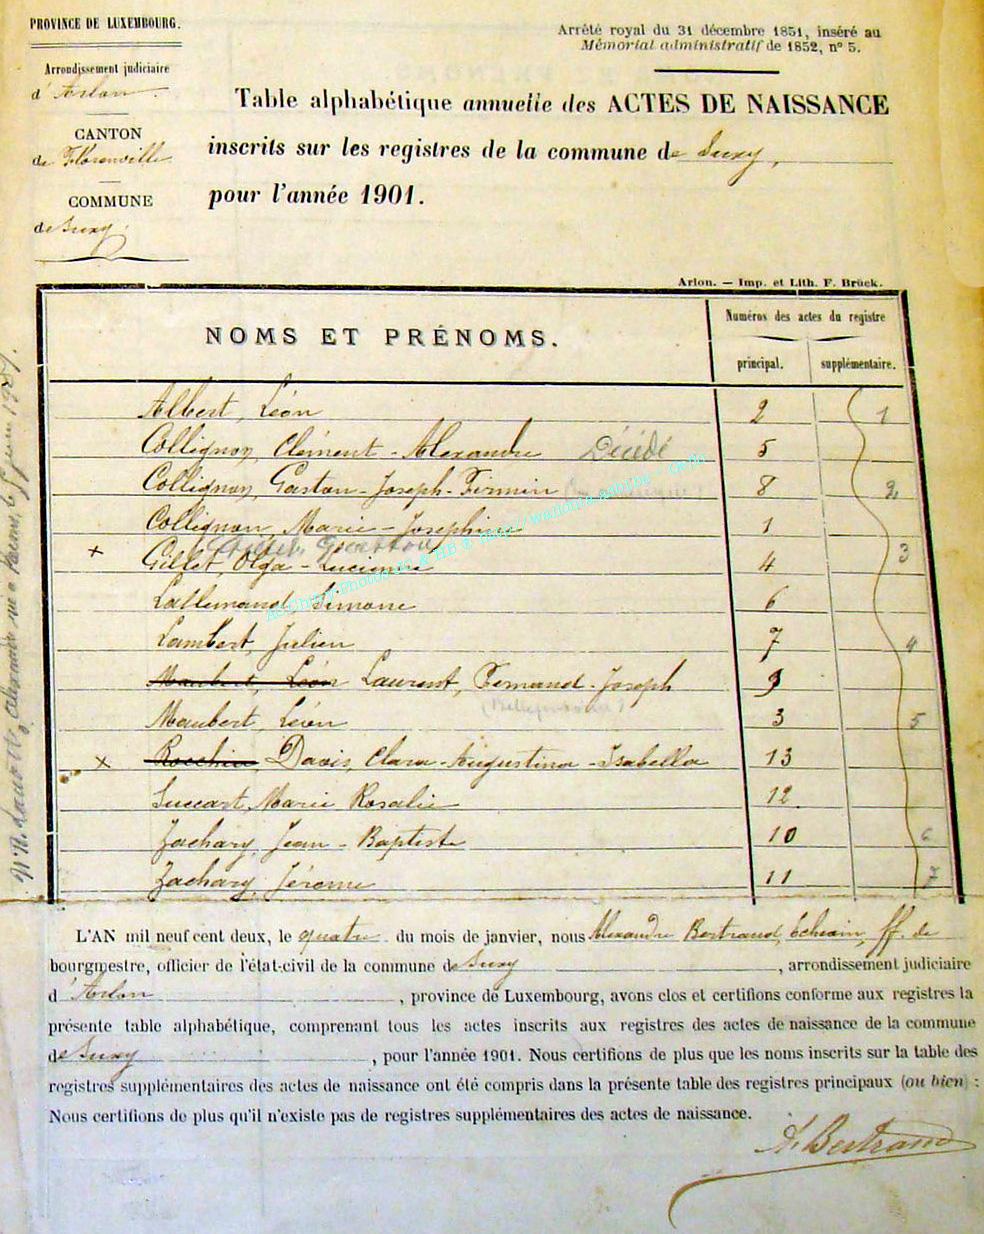 PROVINCE DE LUXEMBOURG.
Arrondissement judiciaire
d'Arlon
CANTON
de Florenville
COMMUNE
de Suxy.
Arrêté royal du 31 décembre 1851, inséré au
Mémorial administratif de 1852, n° 5.
Table alphabétique annuelle des ACTES DE NAISSANCE
inscrits sur les registres de la commune de Suxy,
pour l'année 1901.
Arlon. — Imp. et Lith. F. Brück.
NOMS ET PRÉNOMS.
Numéros des actes du registre
principal. supplémentaire.
Albert, Léon 2 1
Collignon, Clément - Alexandre Décédé 5
Collignon, Gaston - Joseph - Firmin 8 2
Collignon, Marie - Joséphine 1
+ Gillet, Olga - Lucienne 4 3
Lallemand, Simone 6
Lambert, Julien 7 4
Maubert, Léon Laurent, Fernand - Joseph 9
Maubert, Léon 3 5
x Rocchia, Davis, Clara - Augustina - Isabella 13
Succart, Marie Rosalie 12.
Zachary, Jean - Baptiste 10 6
Zachary, Jérome 11
L'AN mil neuf cent deux, le quatre du mois de janvier, nous Alexandre Bertrand, échevin, ff. de
bourgmestre, officier de l'état-civil de la commune de Suxy, arrondissement judiciaire
d'Arlon, province de Luxembourg, avons clos et certifions conforme aux registres la
présente table alphabétique, comprenant tous les actes inscrits aux registres des actes de naissance de la commune
de Suxy, pour l'année 1901. Nous certifions de plus que les noms inscrits sur la table des
registres supplémentaires des actes de naissance ont été compris dans la présente table des registres principaux (ou bien) :
Nous certifions de plus qu'il n'existe pas de registres supplémentaires des actes de naissance.
A. Bertrand